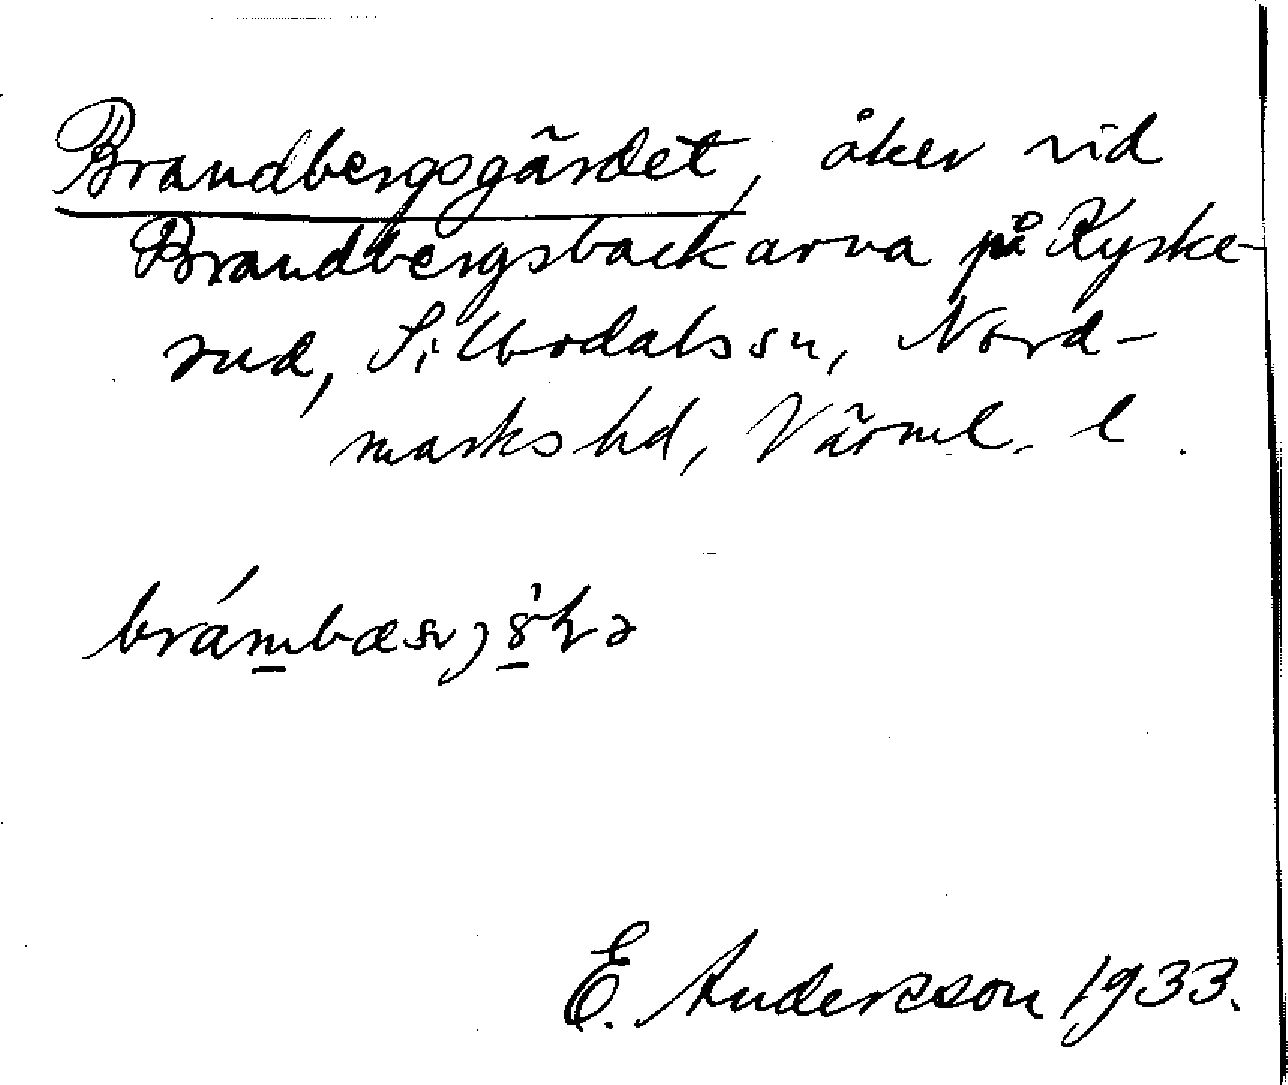 Brandbergsgärdet, åker vid
Brandbergsbackarna på Kyrke-
rud, Silbodals sn, Nord-
marks hd, Värml. l.
E. Andersson 1933.